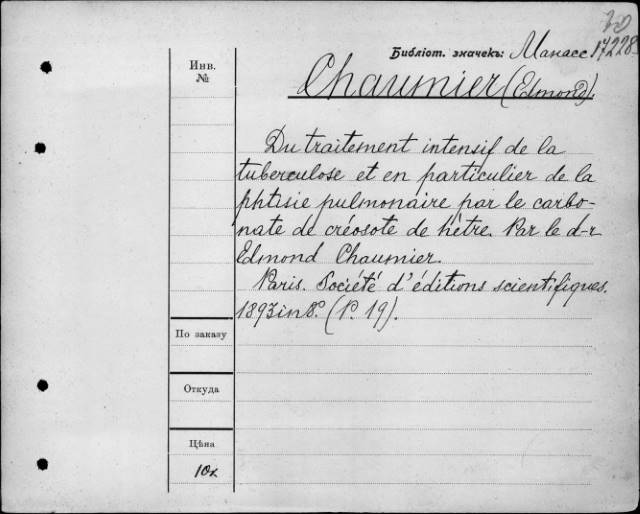 30
Библіот. значекъ: Манасс 17228
Инв. №
Chaumier (Edmond).
Du traitement intensif de la
tuberculose et en particulier de la
phtisie pulmonaire par le carbo-
nate de créosote de hêtre. Par le d-r
Edmond Chaumier.
Paris. Société d'éditions scientifiques.
1893 in 8º. (P. 19).
По заказу
Откуда
Цѣна
10к